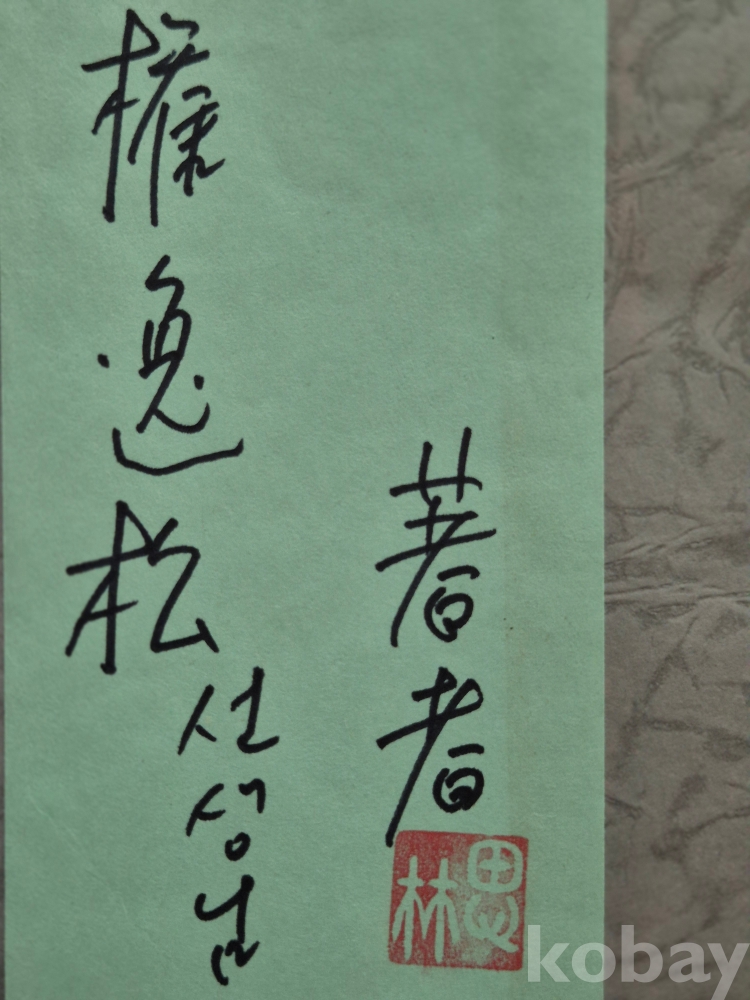 權逸松 선생님
著者
思林
kobay